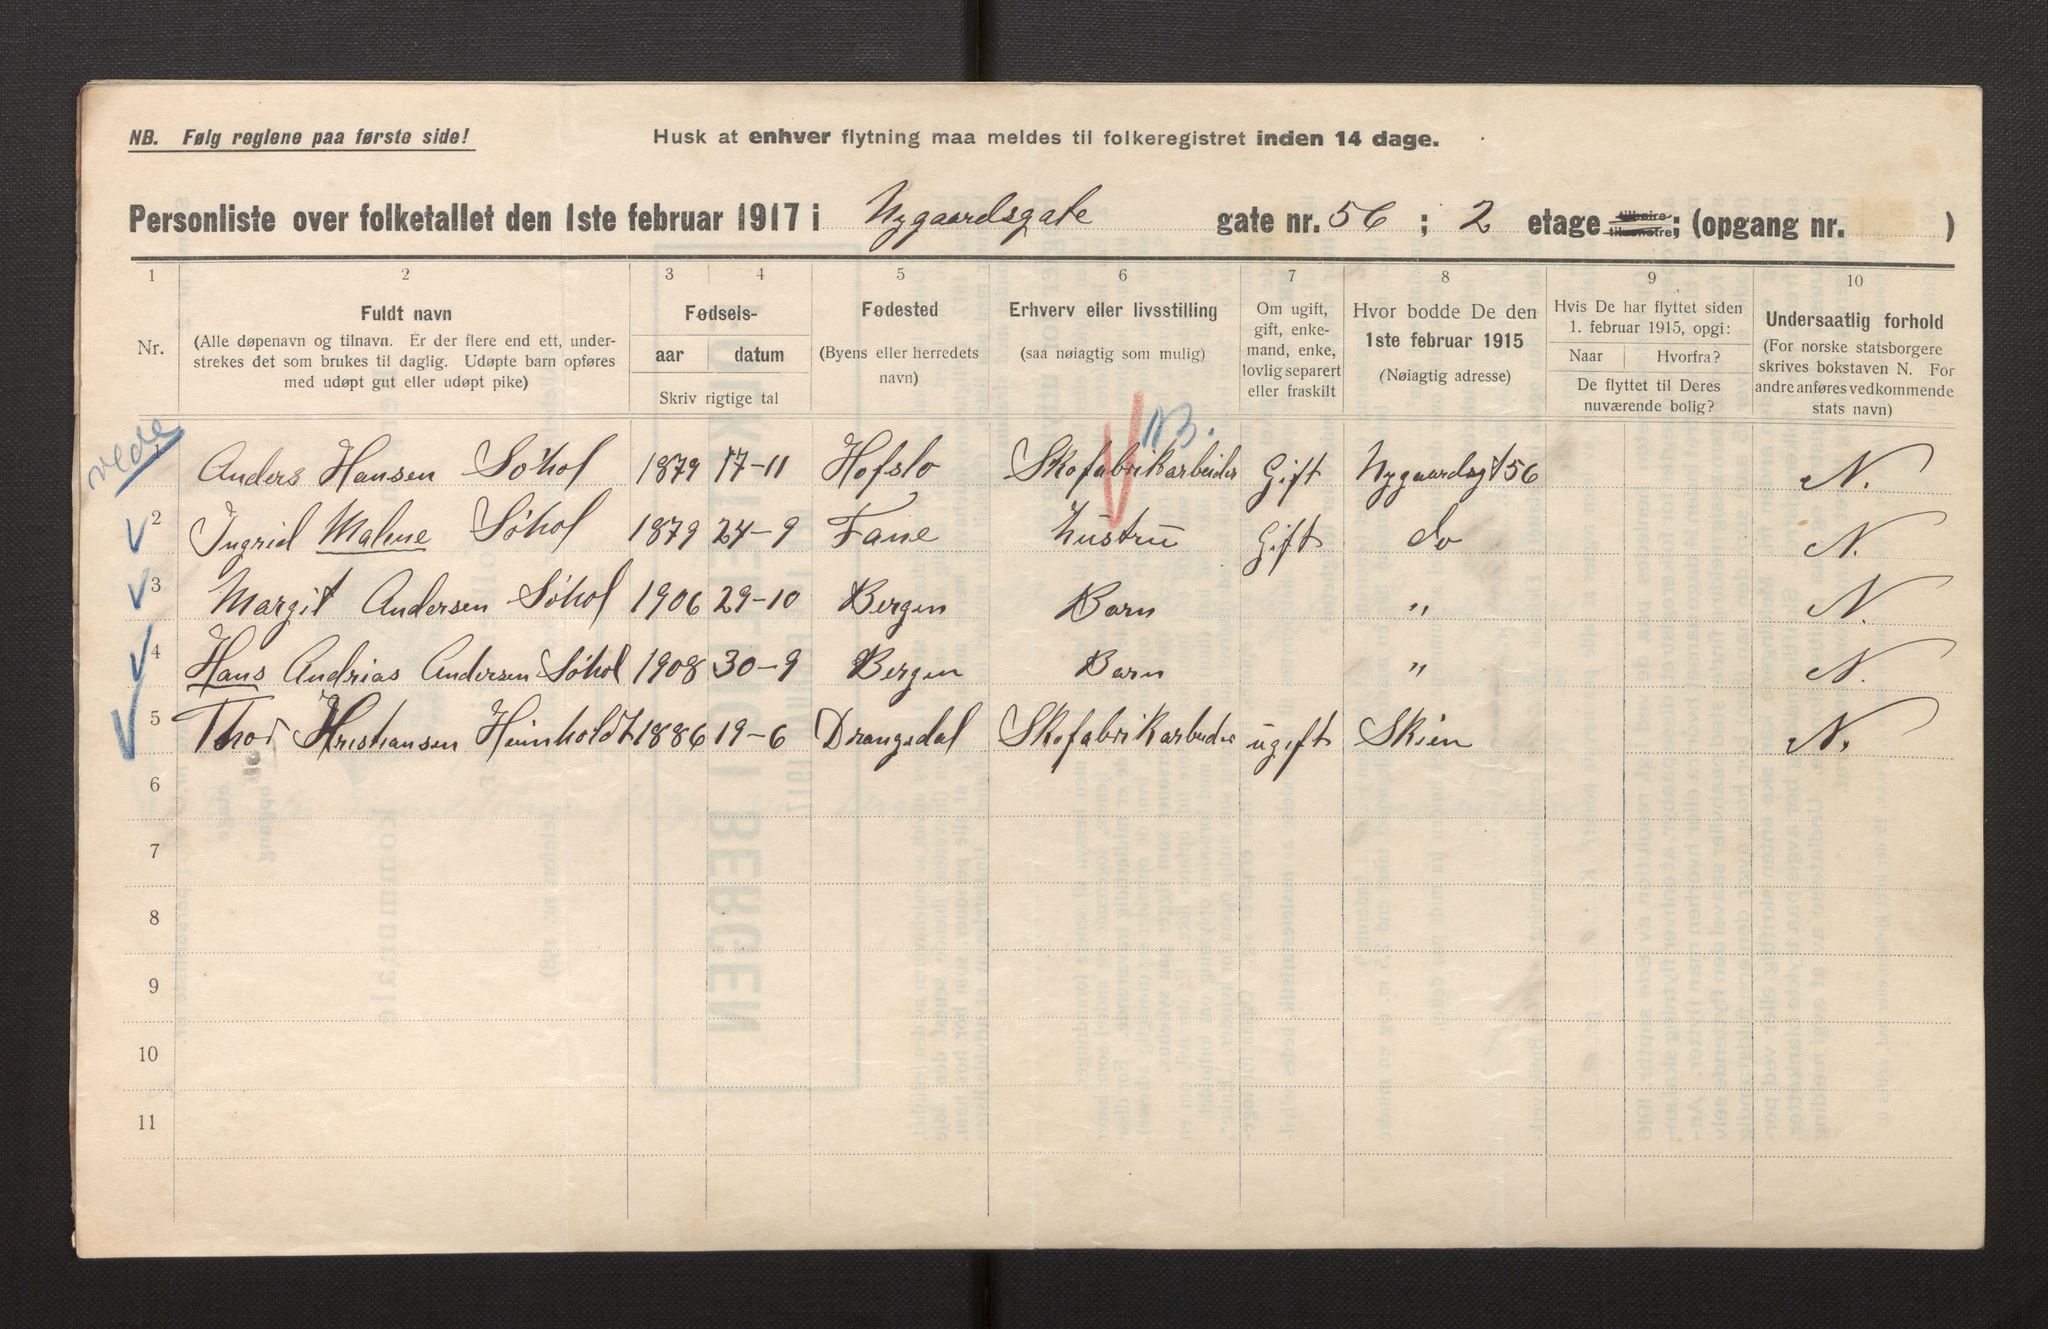 NB. Følg reglene paa første side!
Husk at enhver flytning maa meldes til folkeregistret inden 14 dage.
Personliste over folketallet den 1ste februar 1917 i Nygaardsgate gate nr. 56 ; 2 etage tilhøire tilvenstre; (opgang nr. )
1 2 3 4 5 6 7 8 9 10
Nr.
Fuldt navn
(Alle døpenavn og tilnavn. Er der flere end ett, under-
strekes det som brukes til daglig. Udøpte barn opføres
med udøpt gut eller udøpt pike)
Fødsels-
aar datum
Skriv rigtige tal
Fødested
(Byens eller herredets
navn)
Erhverv eller livsstilling
(saa nøiagtig som mulig)
Om ugift,
gift, enke-
mand, enke,
lovlig separert
eller fraskilt
Hvor bodde De den
1ste februar 1915
(Nøiagtig adresse)
Hvis De har flyttet siden
1. februar 1915, opgi:
Naar Hvorfra?
De flyttet til Deres
nuværende bolig?
Undersaatlig forhold
(For norske statsborgere
skrives bokstaven N. For
andre anføres vedkommende
stats navn)
NB.
Anders Hansen Søhol 1879 17-11 Hofslo Skofabrikarbeider Gift Nygaardsgt 56 N.
2 Ingrid Malene Søhol 1879 24-9 Fane Hustru Gift do N.
3 Margit Andersen Søhol 1906 29-10 Bergen Barn " N.
4 Hans Andrias Andersen Søhol 1908 30-9 Bergen Barn " N.
5 Thor Kristiansen Heimholdt 1886 19-6 Drangedal Skofabrikarbeider ugift Skien N.
6
7
8
9
10
11